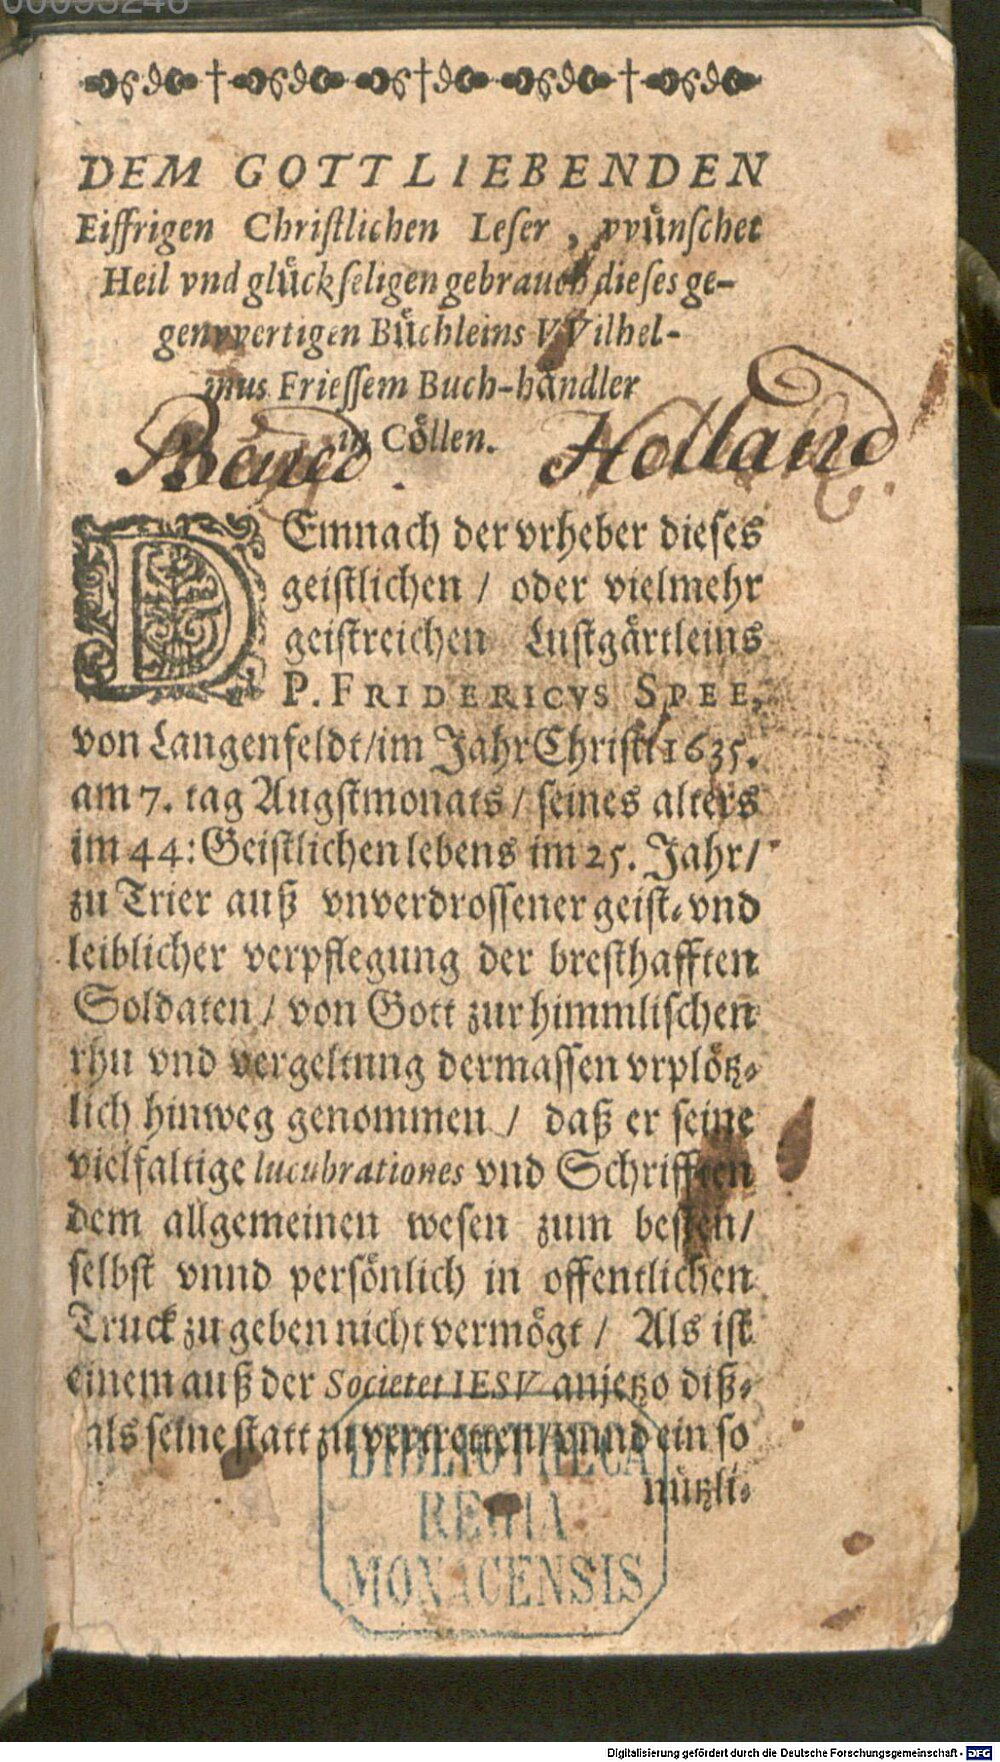 DEM GOTTLIEBENDEN
Eiffrigen Chriſtlichen Leſer, vvünſchet
Heil vnd glückſeligen gebrauch dieſes ge-
genvvertigen Büchleins VVilhel-
mus Frieſſem Buch-händler
in Cöllen.
Bened. Holland.
DEmnach der vrheber dieſes
geiſtlichen / oder vielmehr
geiſtreichen Luſtgärtleins
P. FRIDERICVS SPEE,
von Langenfeldt/im Jahr Chriſti 1635.
am 7. tag Augſtmonats / ſeines alters
im 44: Geiſtlichen lebens im 25. Jahr/
zu Trier auß vnverdroſſener geiſt- vnd
leiblicher verpflegung der breſthafften
Soldaten / von Gott zur himmliſchen
rhu vnd vergeltung dermaſſen vrplötz-
lich hinweg genommen / daß er ſeine
vielfaltige lucubrationes vnd Schrifften
dem allgemeinen weſen zum beſten/
ſelbſt vnnd perſönlich in offentlichen
Truck zu geben nicht vermögt / Als iſt
einem auß der Societet IESV anjetzo diß-
als ſeine ſtatt zu vertretten/vnnd ein ſo
nützli-
BIBLIOTHECA
REGIA
MONACENSIS
Digitalisierung gefördert durch die Deutsche Forschungsgemeinschaft - DFG